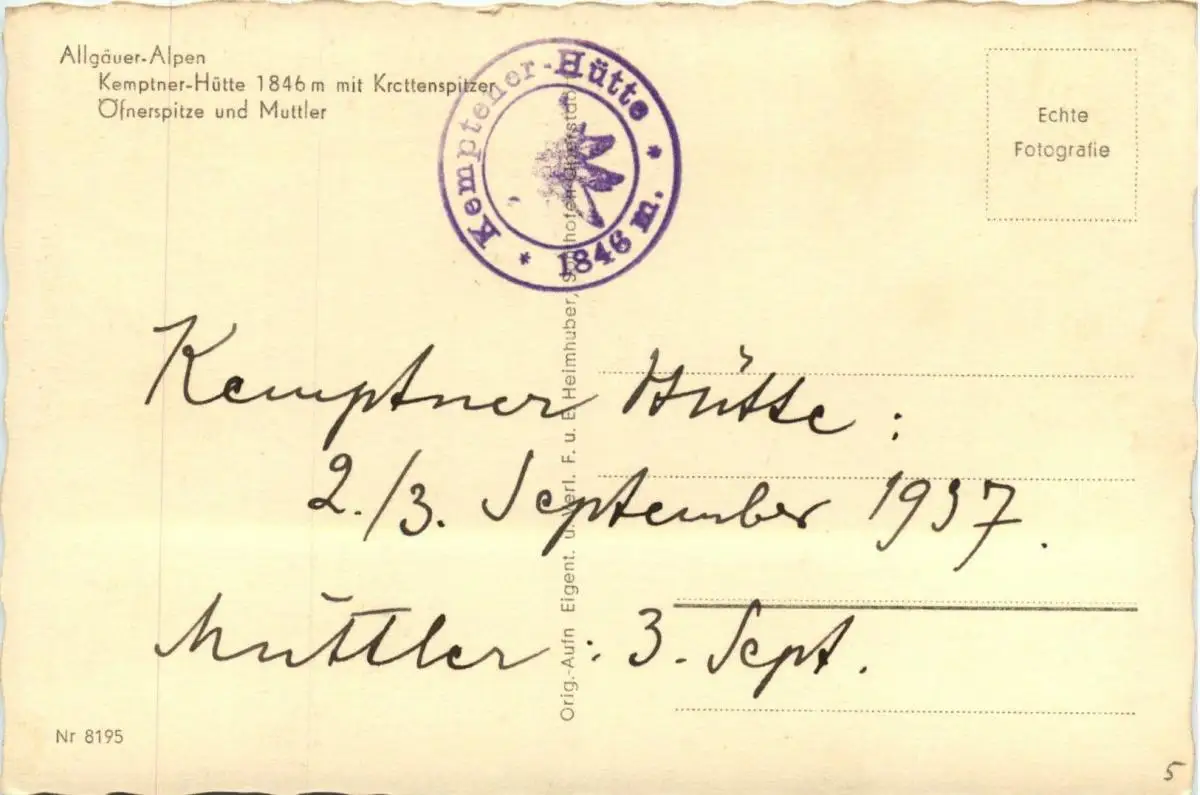 Allgäuer-Alpen
Kemptner-Hütte 1846 m mit Krottenspitzen
Öfnerspitze und Muttler
Kemptener-Hütte
* 1846 m. *
Echte
Fotografie
Kemptner Hütte :
2./3. September 1937.
Muttler : 3. Sept.
Orig.-Aufn Eigent. u. Verl. F. u. E. Heimhuber, Sonthofen-Oberstdorf
Nr 8195
5